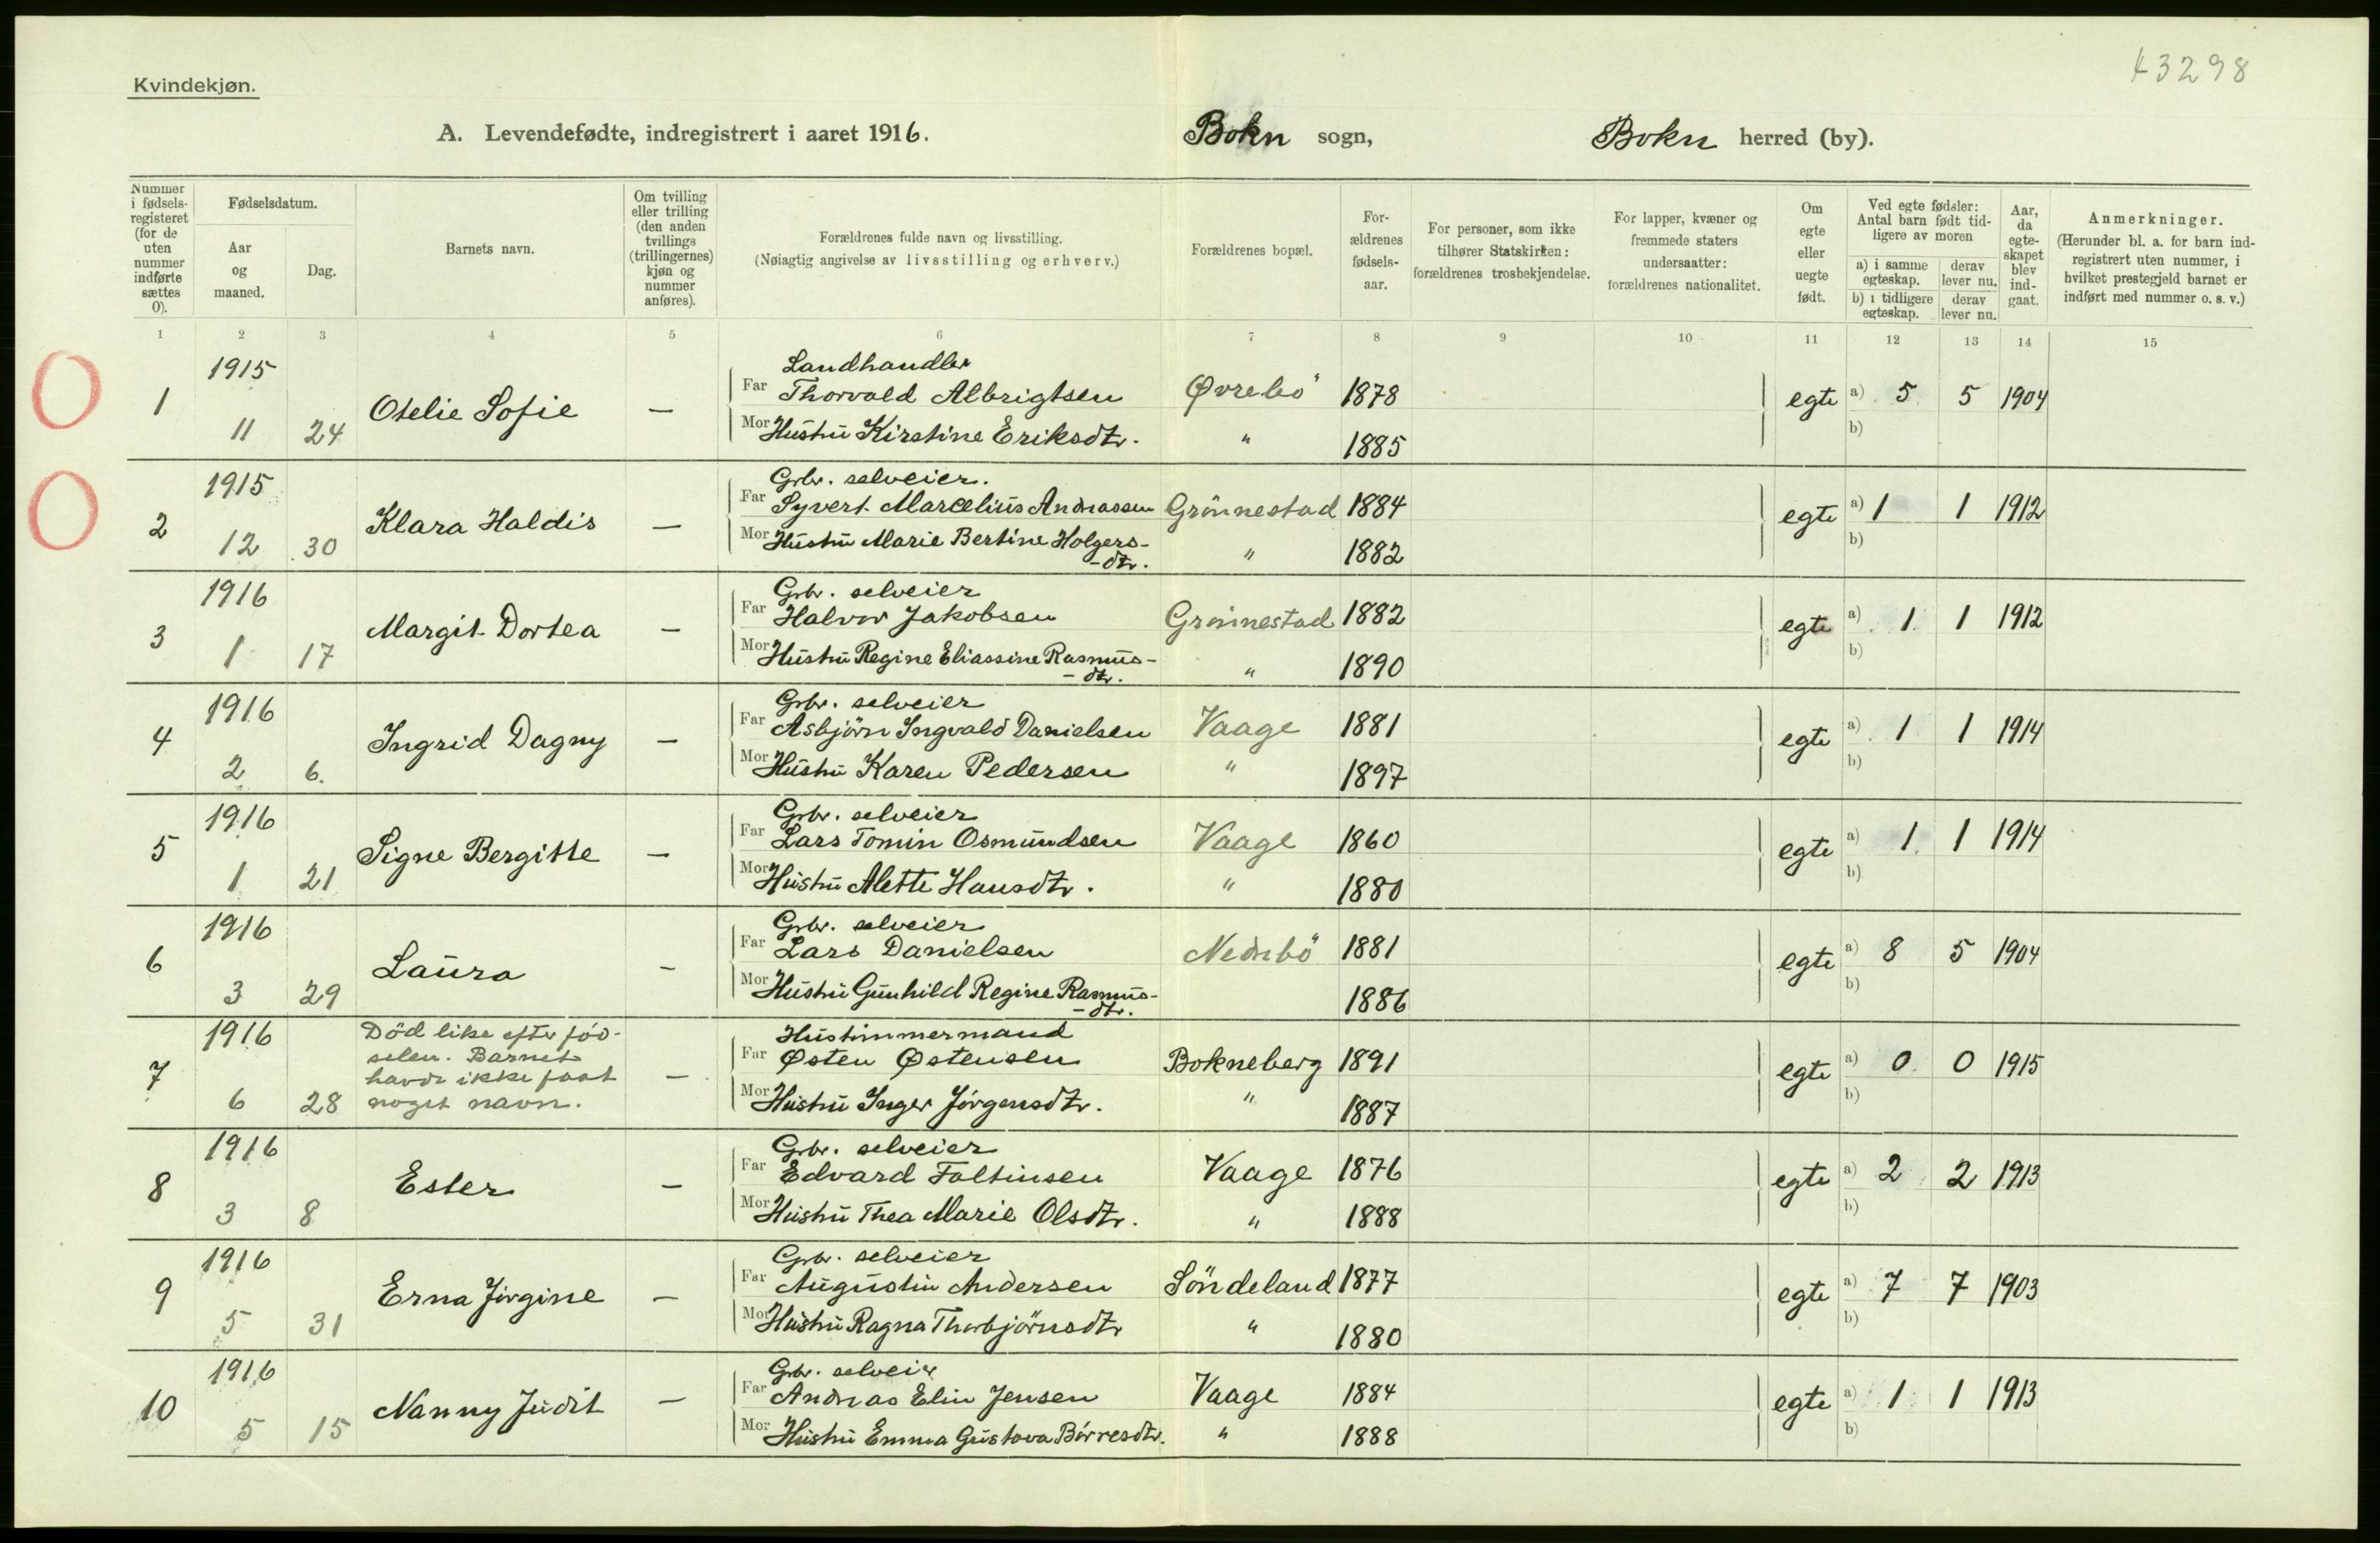 43298
Kvindekjøn.
A. Levendefødte, indregistrert i aaret 1916. Bokn sogn, Bokn herred (by).
Nummer i fødselsregisteret (for de uten nummer indførte sættes 0).
Fødselsdatum.
Aar og maaned.
Dag.
Barnets navn.
Om tvilling eller trilling (den anden tvillings (trillingernes) kjøn og nummer anføres).
Forældrenes fulde navn og livsstilling.
(Nøiagtig angivelse av livsstilling og erhverv.)
Forældrenes bopæl.
For-ældrenes fødsels-aar.
For personer, som ikke tilhører Statskirken: forældrenes trosbekjendelse.
For lapper, kvæner og fremmede staters undersaatter: forældrenes nationalitet.
Om egte eller uegte født.
Ved egte fødsler: Antal barn født tid-ligere av moren
a) i samme egteskap. derav lever nu.
b) i tidligere egteskap. derav lever nu.
Aar, da egte-skapet blev ind-gaat.
Anmerkninger.
(Herunder bl. a. for barn ind-registrert uten nummer, i hvilket prestegjeld barnet er indført med nummer o. s. v.)
1 2 3 4 5 6 7 8 9 10 11 12 13 14 15
1915 Landhandler
1 Otelie Sofie — Far Thorvald Albrigtsen Øvrebö 1878 egte a) 5 5 1904
11 24 Mor Hustru Kirstine Eriksdtr. " 1885 b)
1915 Grbr. selveier.
2 Klara Haldis — Far Syvert Marcelius Andreassen Grönnestad 1884 egte a) 1 1 1912
12 30 Mor Hustru Marie Bertine Holgers- " 1882 b)
-dtr.
1916 Grbr. selveier
3 Margit Dortea — Far Halvor Jakobsen Grönnestad 1882 egte a) 1 1 1912
1 17 Mor Hustru Regine Eliassine Rasmus- " 1890 b)
-dtr.
1916 Grbr. selveier
4 Ingrid Dagny — Far Asbjörn Ingvald Danielsen Vaage 1881 egte a) 1 1 1914
2 6. Mor Hustru Karen Pedersen " 1897 b)
1916 Grbr. selveier
5 Signe Bergitte — Far Lars Tomin Osmundsen Vaage 1860 egte a) 1 1 1914
1 21 Mor Hustru Alette Hansdtr. " 1880 b)
1916 Grbr. selveier
6 Laura — Far Lars Danielsen Nedrebö 1881 egte a) 8 5 1904
3 29 Mor Hustru Gunhild Regine Rasmus- 1886 b)
-dtr.
1916 Död like efter föd- Hustimmermand
7 selen. Barnet — Far Østen Østensen Bokneberg 1891 egte a) 0 0 1915
havde ikke faat
6 28 noget navn. Mor Hustru Inger Jörgensdtr. " 1887 b)
1916 Grbr. selveier
8 Ester — Far Edvard Foltinsen Vaage 1876 egte a) 2 2 1913
3 8 Mor Hustru Thea Marie Olsdtr. " 1888 b)
1916 Grbr. selveier
9 Erna Jörgine — Far Augustin Andersen Söndeland 1877 egte a) 7 7 1903
5 31 Mor Hustru Ragna Thorbjörnsdtr " 1880 b)
1916 Grbr. selveier
10 Nanny Judit — Far Andreas Elin Jensen Vaage 1884 egte a) 1 1 1913
5 15 Mor Hustru Emma Gustava Börresdtr. " 1888 b)